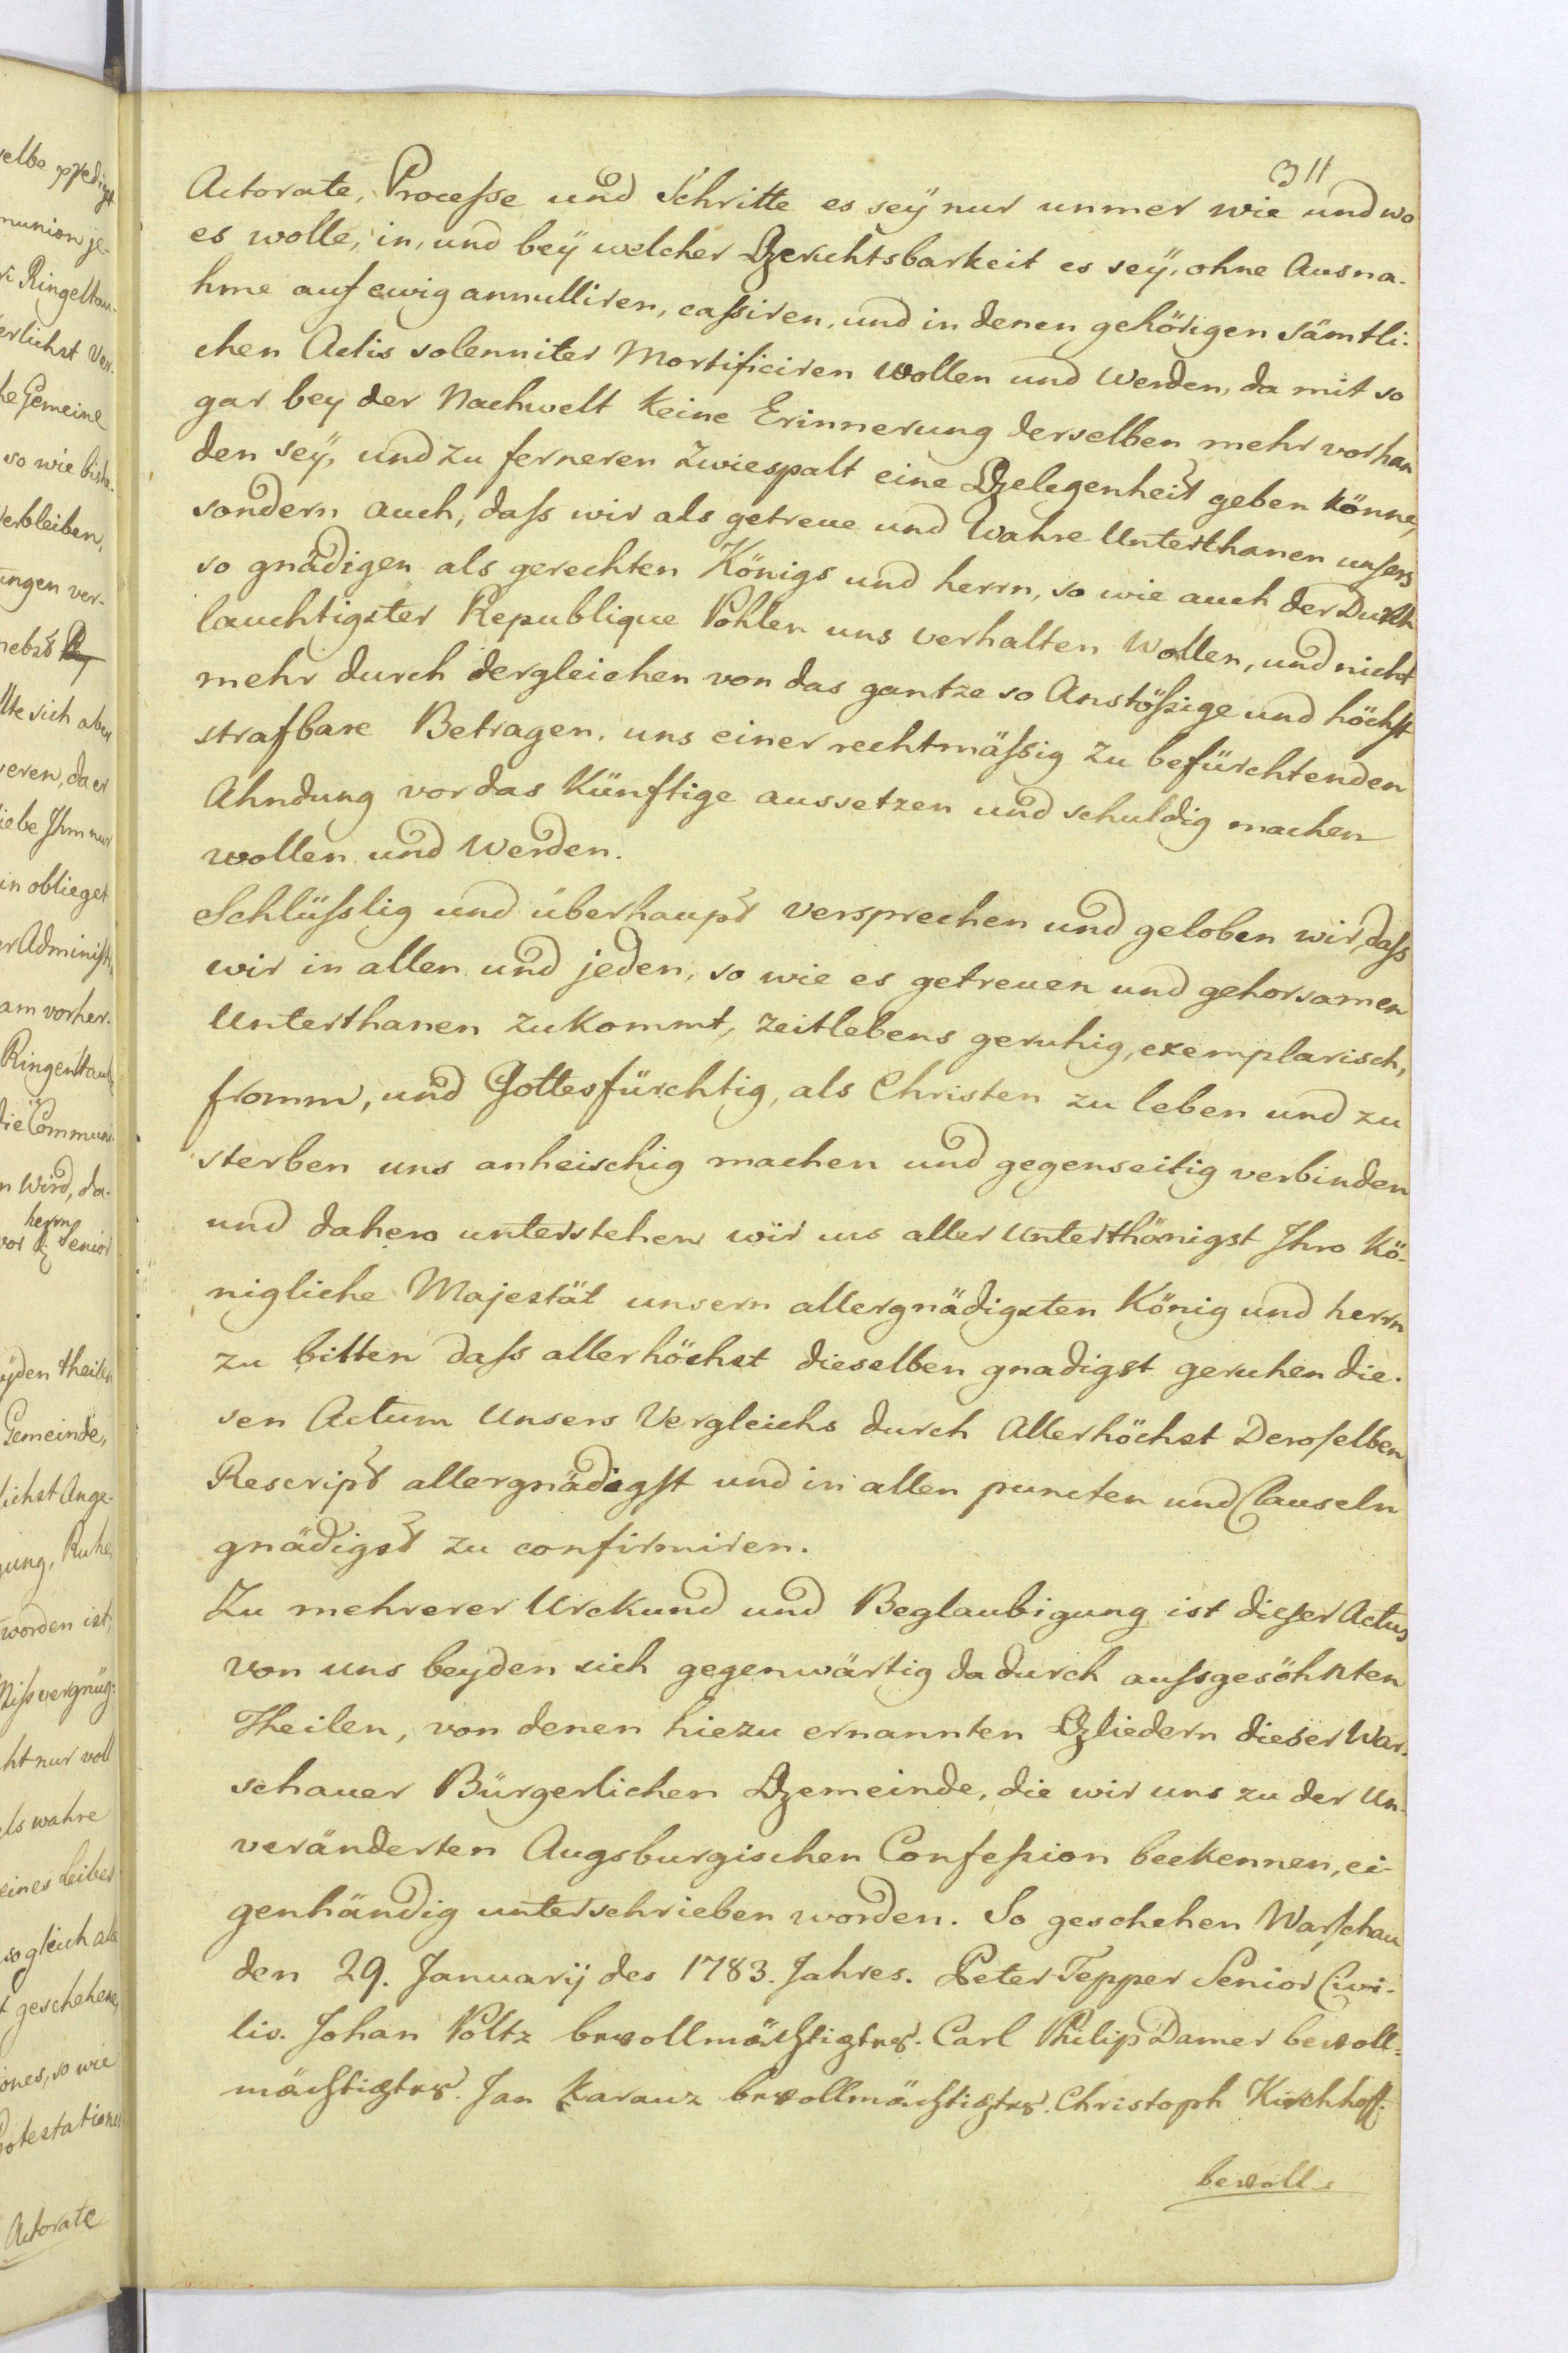 311
Actorate, Processe und Schritte es seÿ nur unmer wie und wo
es wolle, in, und beÿ welcher Gerichtsbarkeit es seÿ, ohne Ausna-
hme auf ewig annulliren, cassiren, und in denen gehörigen sämtli-
chen Actis solenniter Mortificiren wollen und werden, da mit so
gar bey der Nachwelt keine Erinnerung derselben mehr vorhan
den seÿ, und zu ferneren Zwiespalt eine Gelegenheit geben könne,
sondern auch, dass wir als getreue und Wahre Unterthanen unsers
so gnädigen als gerechten Königs und herrn, so wie auch der Durch
lauchtigster Republique Pohlen uns verhalten Wollen, und nicht
mehr durch dergleichen von das gantze so Anstössige und höchst
strafbare Betragen, uns einer rechtmässig zu befürchtenden
Ahndung vor das Künftige aussetzen und schuldig machen
wollen und Werden.
Schlüsslig und überhaupt versprechen und geloben wir, dass
wir in allen und jeden, so wie es getreuen und gehorsamen
Unterthanen zukommt, zeitlebens geruhig, exemplarisch,
fromm, und Gottesfürchtig, als Christen zu leben und zu
sterben uns anheischig machen und gegenseitig verbinden
und dahero unterstehen wir uns aller unterthänigst Ihro Kö-
nigliche Majestät unsern allergnädigsten König und herrn
zu bitten dass allerhöchst dieselben gnadigst geruhen die-
sen Actum Unsers Vergleichs durch Allerhöchst Deroselben
Rescript allergnädigst und in allen puncten und Clauseln
gnädigst zu confirmiren.
Zu mehrerer Urckund und Beglaubigung ist dieser Actus
von uns beyden sich gegenwärtig dadurch aussgesöhnten
Theilen, von denen hiezu ernannten Gliedern dieser War-
schauer Bürgerlichen Gemeinde, die wir uns zu der Un-
veränderten Augsburgischen Confession beekennen, ei-
genhändig unterschrieben worden. So geschehen Warschau
den 29. Januarij des 1783. Jahres. Peter Tepper Senior Civi-
lis. Johan Poltz bevollmächtigter. Carl Philip Damer bevoll-
mächtigter. Jan Karauz bevollmächtigter. Christoph Kirchhoff.
bevoll-